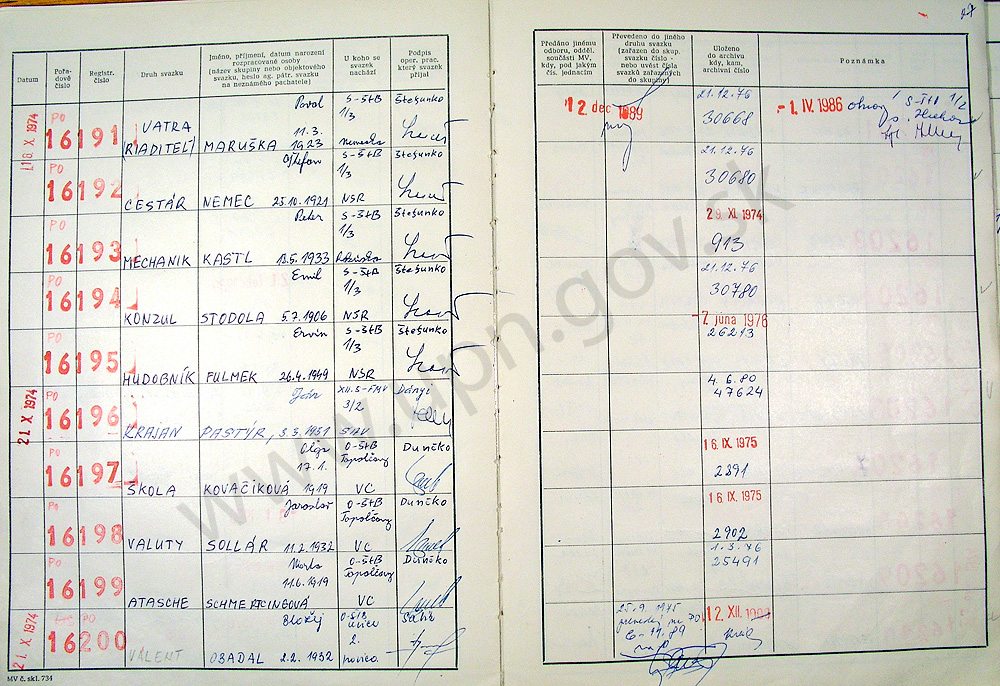 27
Datum
Pořadové číslo
Registr. číslo
Druh svazku
Jméno, příjmení, datum narození rozpracované osoby (název skupiny nebo objektového svazku, heslo ag. pátr. svazku na neznámého pachatele)
U koho se svazek nachází
Podpis oper. prac. který svazek přijal
Předáno jinému odboru, odděl. součásti MV, kdy, pod jakým čís. jednacím
Převedeno do jiného druhu svazku (zařazen do skup. svazku číslo - nebo uvést čísla svazků zařazených do skupiny)
Uloženo do archivu kdy, kam, archivní číslo
Poznámka
18 X 1974
PO
16191
VATRA
(RIADITEĽ)
Pavol
MARUŠKA 11.3.1923
S-ŠtB
1/3
Štefunko
12 dec 1989
21.12.76
30668
-1. IV. 1986
PO
16192
CESTÁR
NEMEC 25.10.1921
S-ŠtB
1/3
NSR
Štefunko
21.12.76
30680
PO
16193
MECHANIK
Peter
KASTL 13.5.1933
S-ŠtB
1/3
Štefunko
29. XI. 1974
913
PO
16194
KONZUL
Emil
STODOLA 5.7.1906
S-ŠtB
1/3
NSR
Štefunko
21.12.76
30780
PO
16195
HUDOBNÍK
Ervín
FULMEK 26.4.1949
S-ŠtB
1/3
NSR
Štefunko
-7. júna 1976
26213
21 X 1974
PO
16196
KRAJAN
Ján
PASTÝR, 3.3.1931
3/2
Dányi
4.6.80
47624
PO
16197
ŠKOLA
Oľga
17.1.
KOVAČIKOVÁ 1919
O-ŠtB
Topoľčany
VC
Dunčko
16 IX. 1975
2891
PO
16198
VALUTY
Jaroslav
SOLLÁR 11.2.1932
O-ŠtB
Topoľčany
VC
Dunčko
16 IX. 1975
2902
PO
16199
ATASCHE
Marta
11.6.1919
SCHMERTCINGOVÁ
O-ŠtB
Topoľčany
VC
Dunčko
1.3.76
25491
21. X 1974
PO
16200
VALENT
Blažej
OBADAL 2.2.1932
2.
25.9.1975
12. XII.
MV č. skl. 734
www.upn.gov.sk